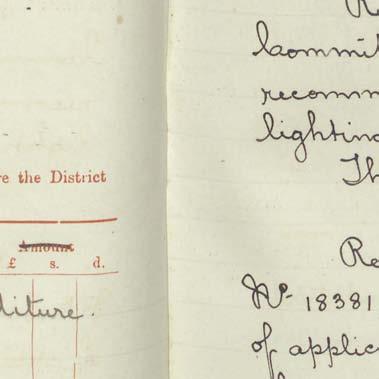 re the District
Amount
£ s. d.
diture.
Re
Commit
recomm
lighting
Th
Re
No. 18381
of applic